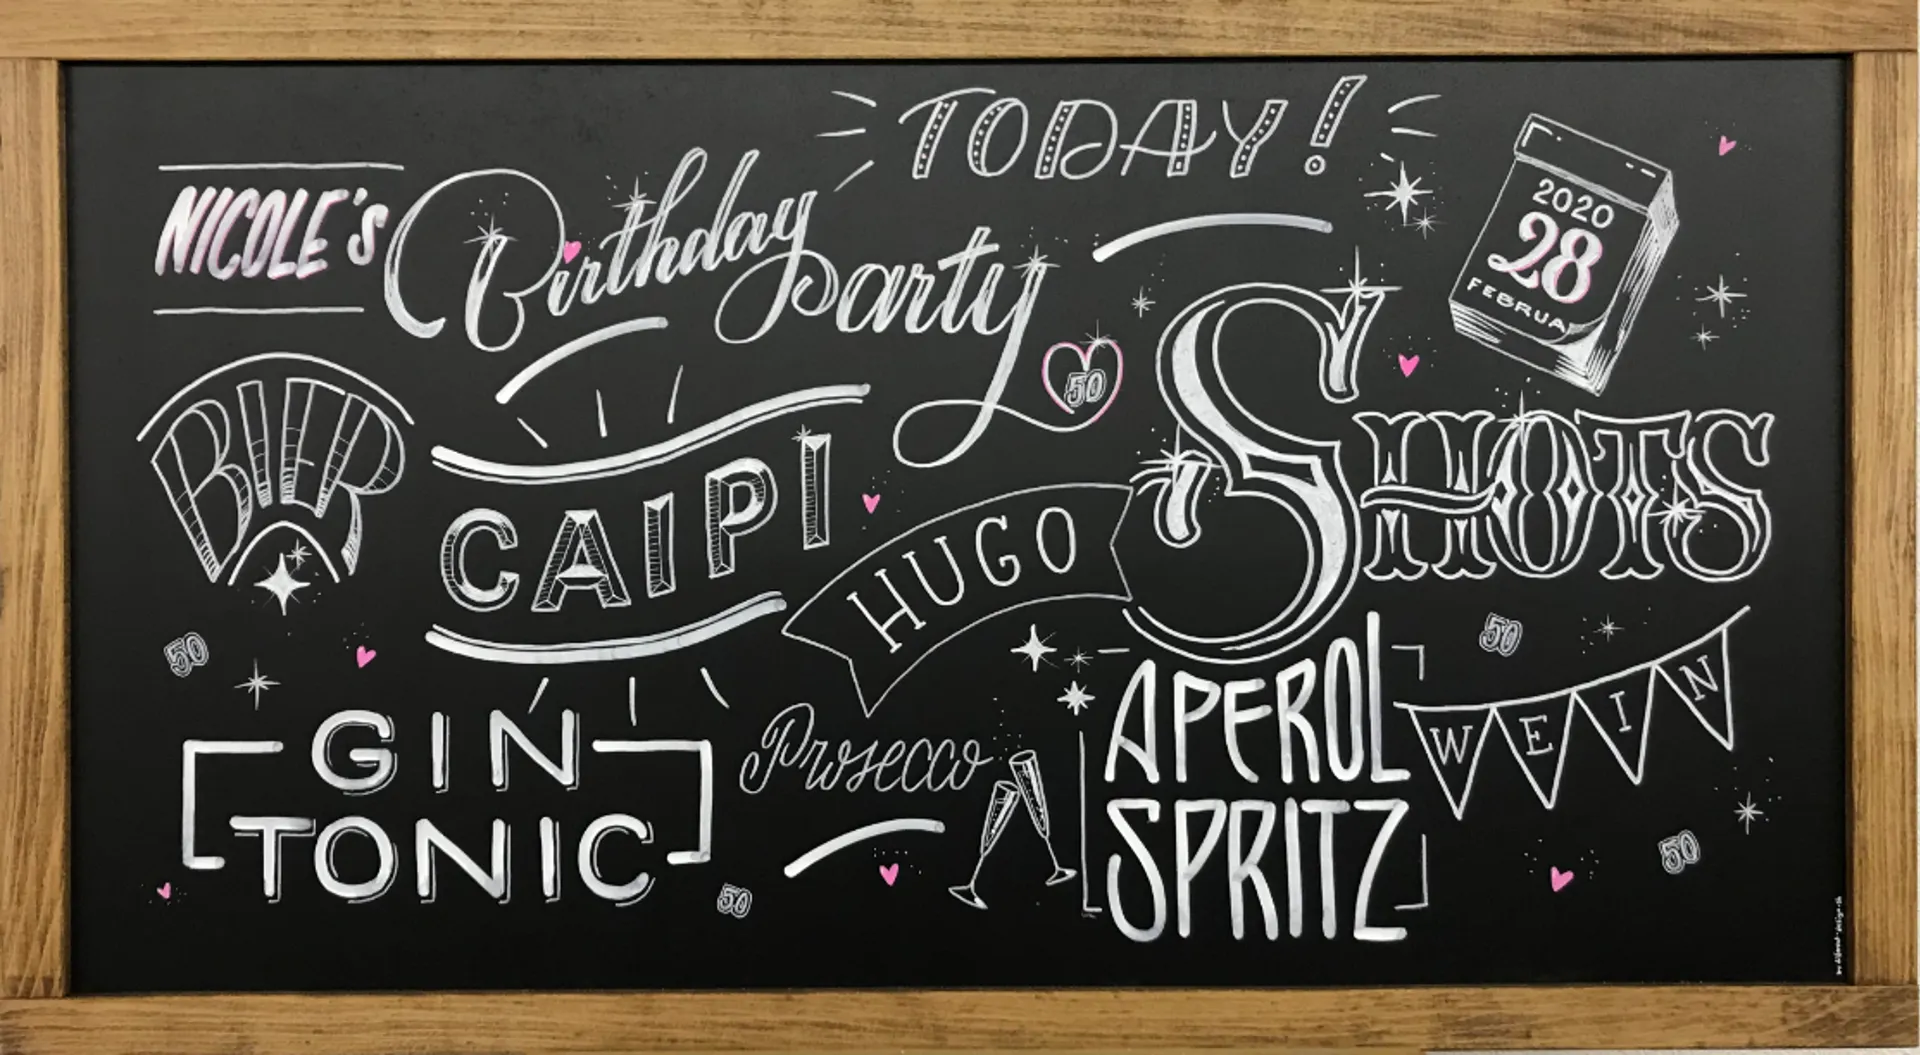 TODAY!
NICOLE'S Birthday Party
2020
28
FEBRUA
50
BIER
CAIPI
HUGO
SHOTS
50
50
WEIN
GIN
TONIC
Prosecco
APEROL
SPRITZ
50
50